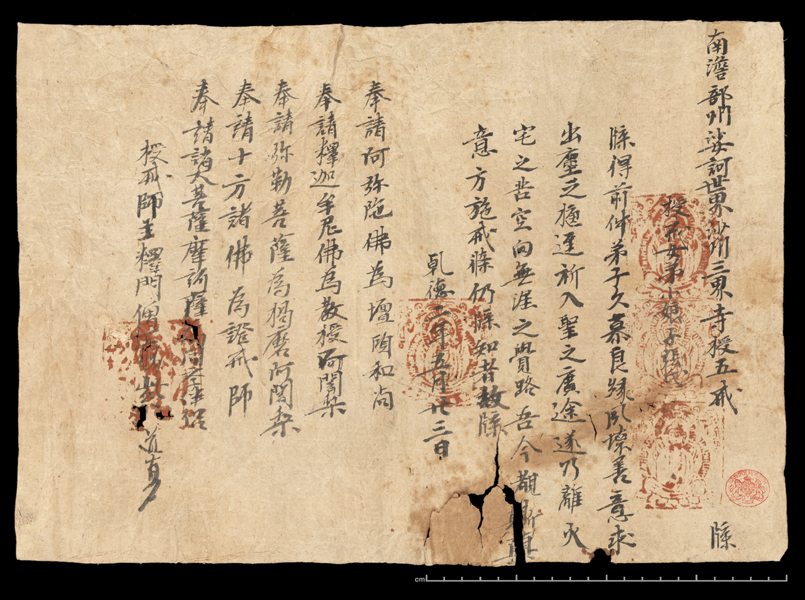 南澹部州娑訶世界沙州三界寺授五戒牒
授戒女弟子張
牒得前件弟子久慕良緣夙懷善意求
出塵之捷逕祈入聖之廣途遂乃離火
宅之苦空向無涯之覺路吾今覩斯
意方施戒牒仍牒知者故牒
乾德二年五月廿三日
奉請阿弥陁佛為壇頭和尚
奉請釋迦牟尼佛為教授阿闍梨
奉請弥勒菩薩為羯磨阿闍梨
奉請十方諸佛為證戒師
奉請諸大菩薩摩訶薩同學伴侶
授戒師主釋門僧道真
cm